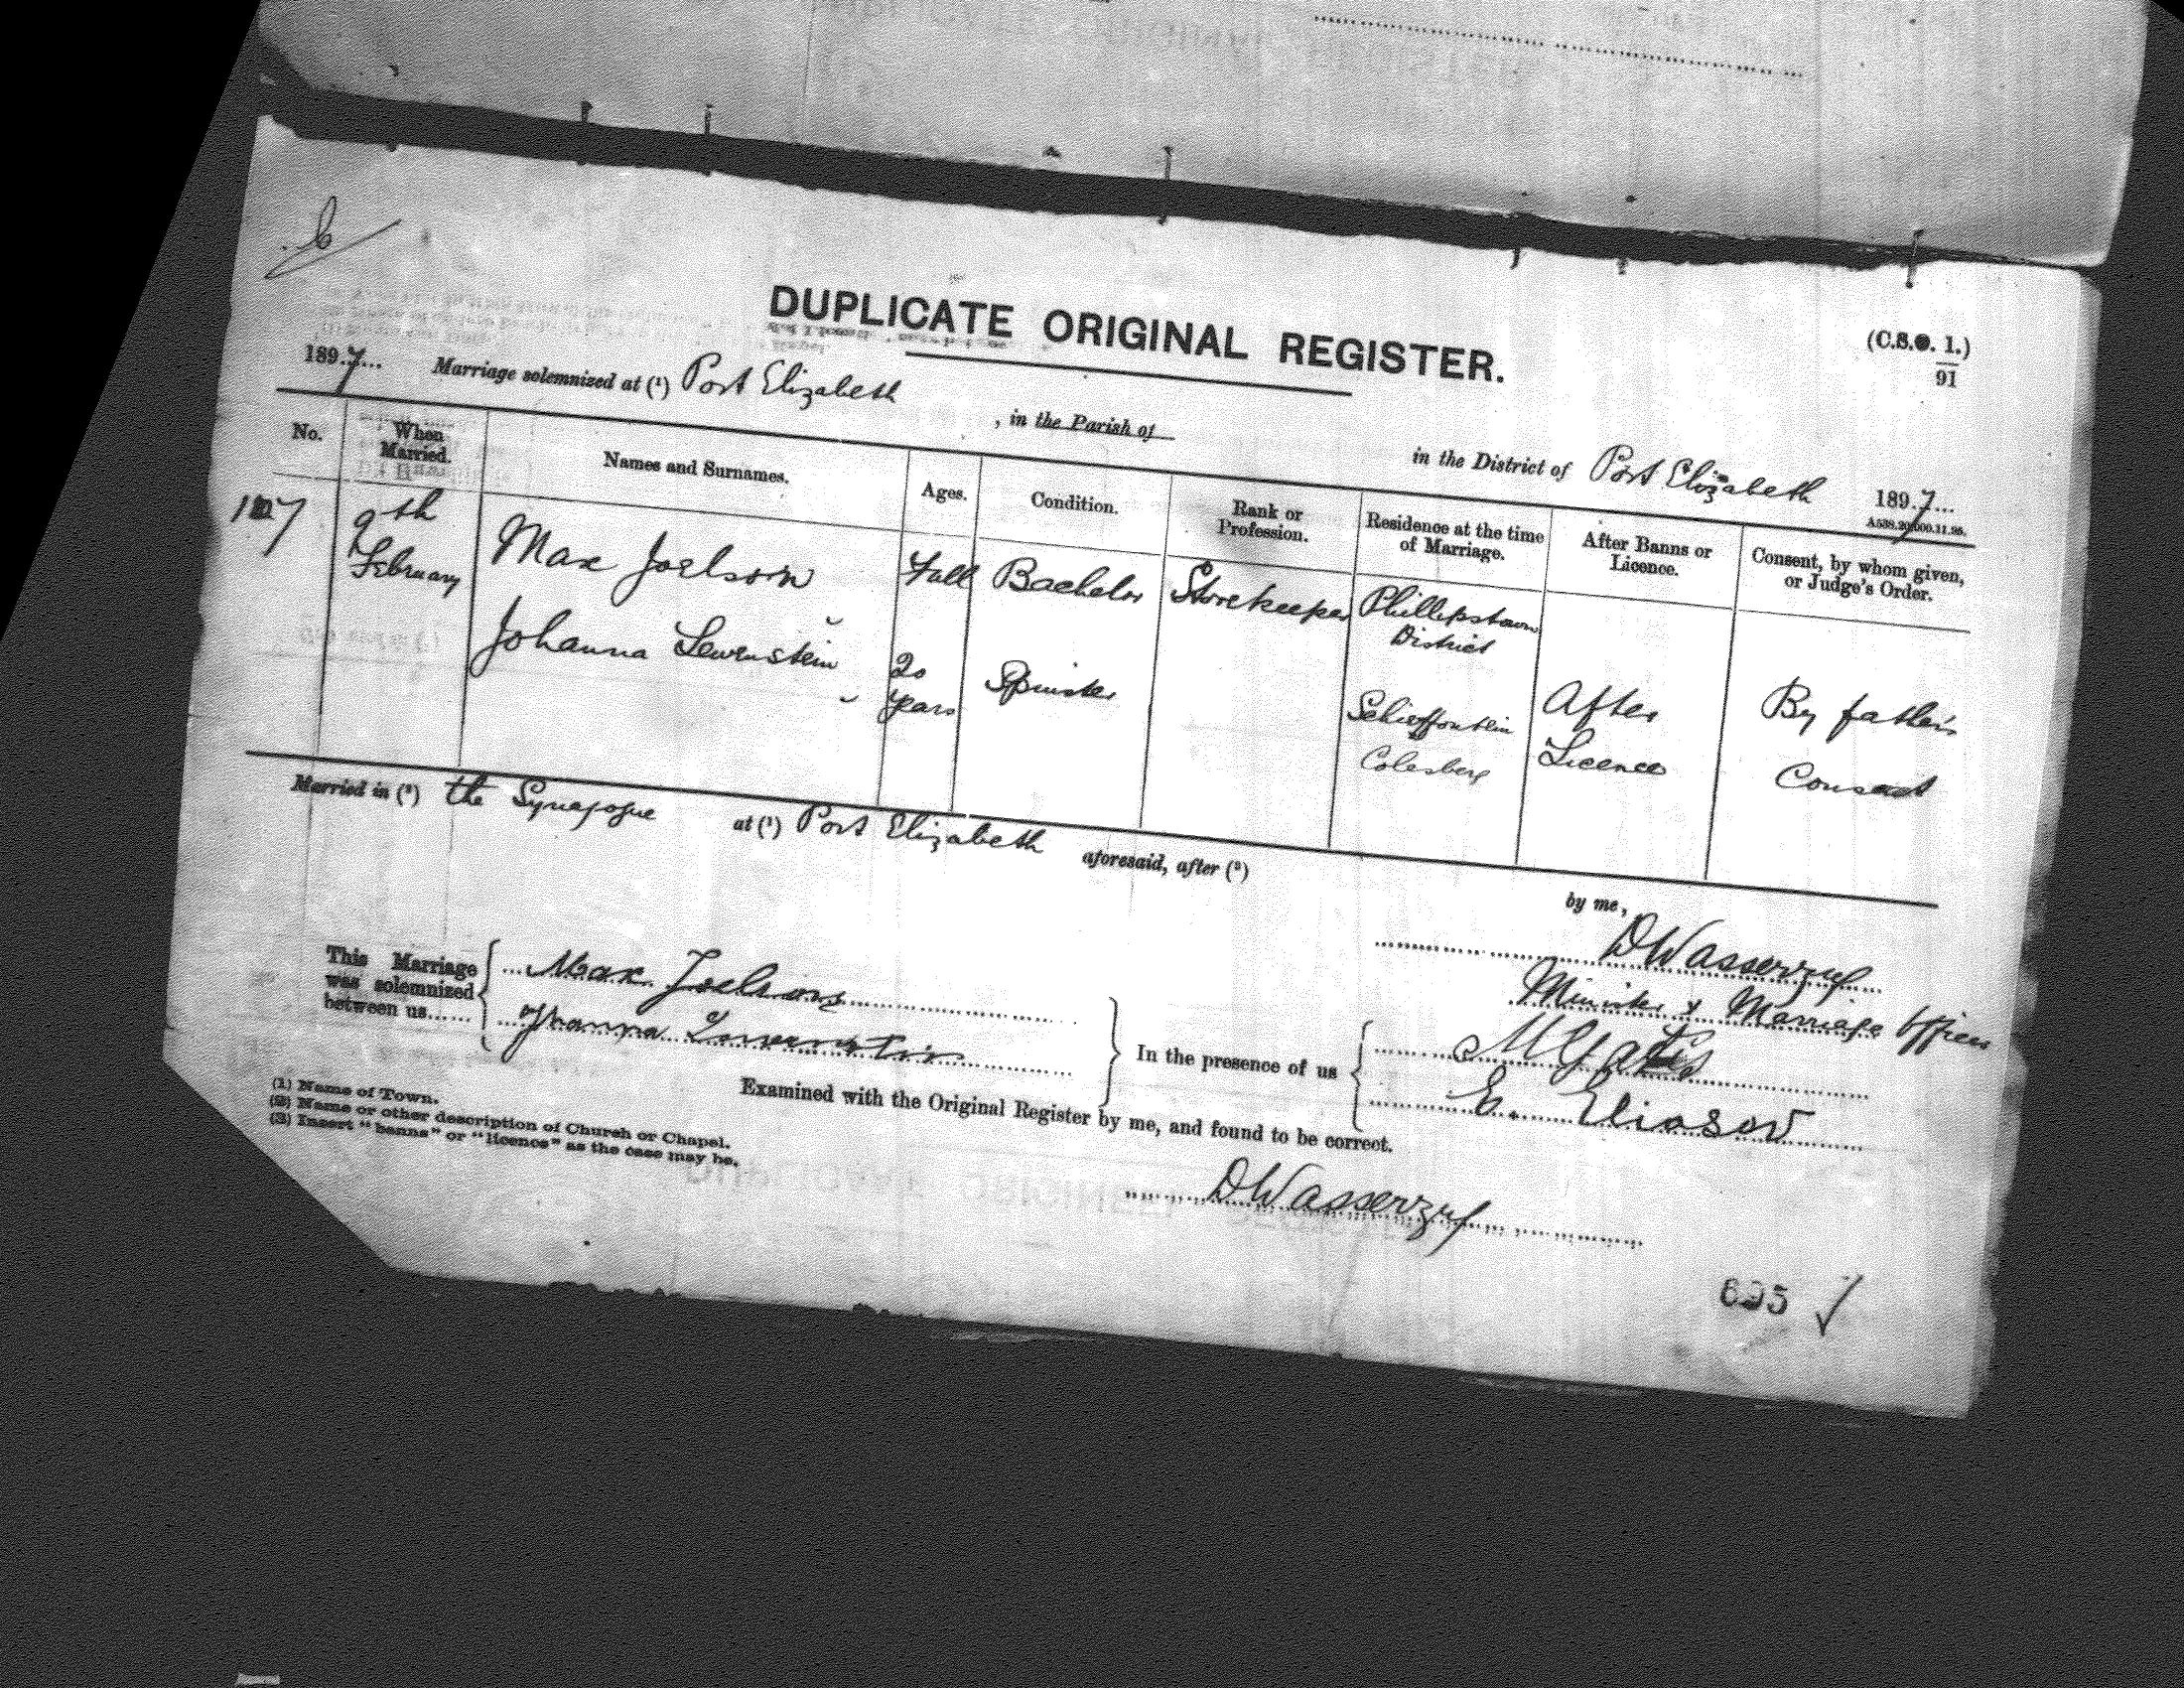 DUPLICATE ORIGINAL REGISTER.
(C.S.O. 1.)
91
1897... Marriage solemnized at (1) Port Elizabeth , in the Parish of in the District of Port Elizabeth 1897...
No. When Married. Names and Surnames. Ages. Condition. Rank or Profession. Residence at the time of Marriage. After Banns or Licence. Consent, by whom given, or Judge's Order.
9th February Max Joelson Full Bachelor Storekeeper Phillipstown District
Johanna Lewenstein 20 years Spinster Colesberg After Licence By father's Consent
Married in (2) the Synagogue at (1) Port Elizabeth aforesaid, after (3) by me,
DWasserzug
Minister & Marriage Officer
This Marriage was solemnized between us...... Max Joelson
Johanna Lewenstein
In the presence of us
E. Eliasov
Examined with the Original Register by me, and found to be correct.
DWasserzug
(1) Name of Town.
(2) Name or other description of Church or Chapel.
(3) Insert "banns" or "licence" as the case may be.
695